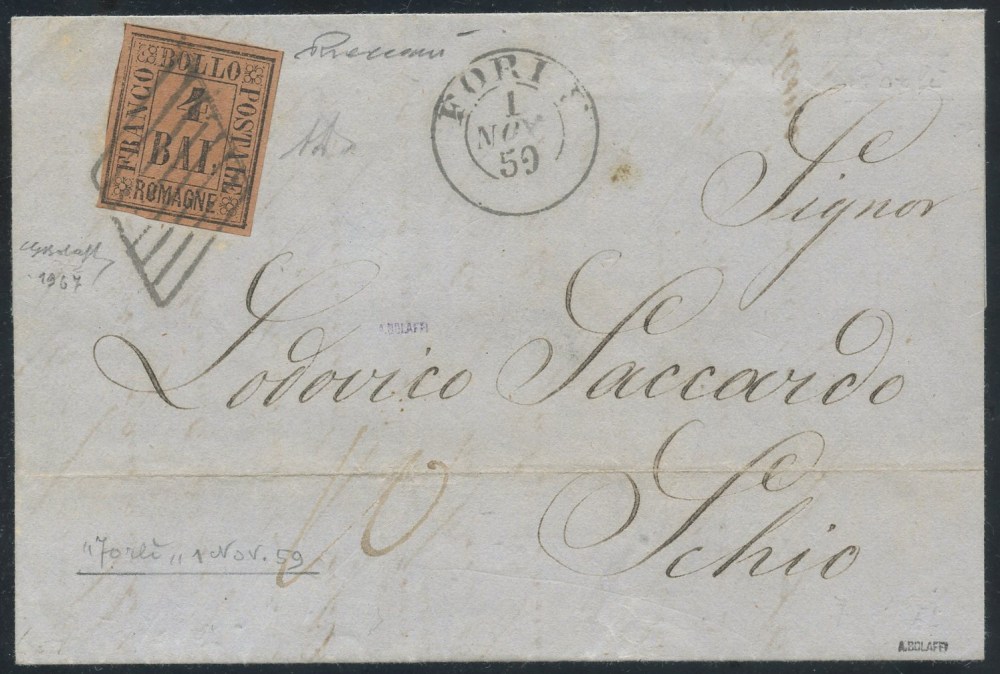 FRANCO BOLLO POSTALE
4
BAI.
ROMAGNE
FORLI
1
NOV
59
Signor
1967
A.BOLAFFI
Lodovico Saccardo
10
Schio
"Forlì" 1 Nov. 59
A.BOLAFFI